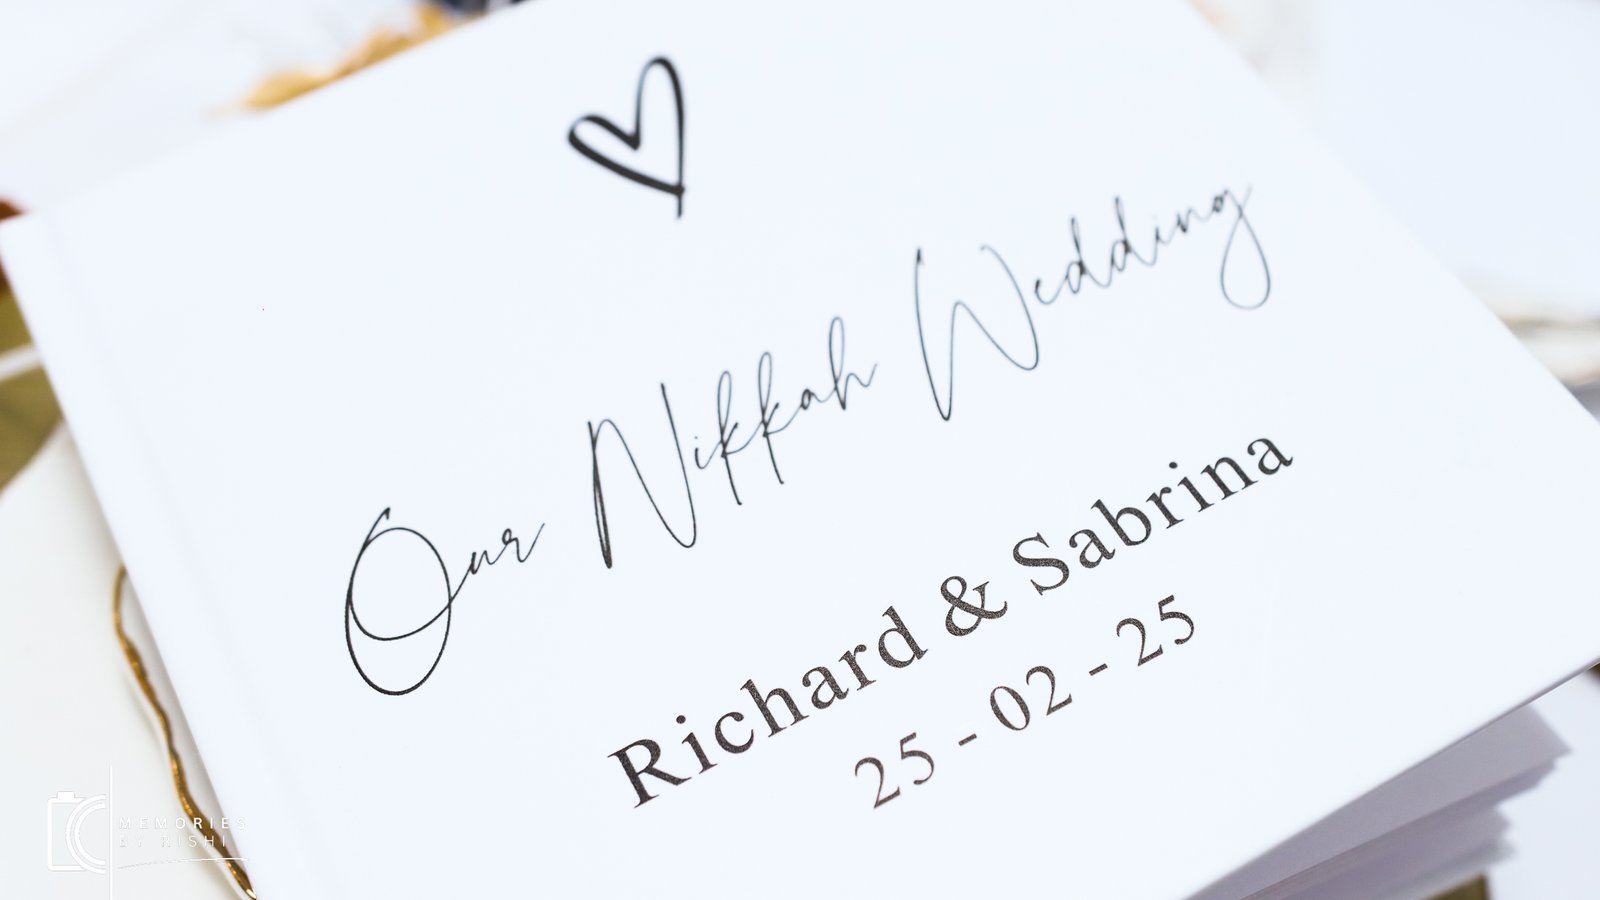 Our Nikkah Wedding
Richard & Sabrina
25 - 02 - 25
MEMORIES
BY RISHI